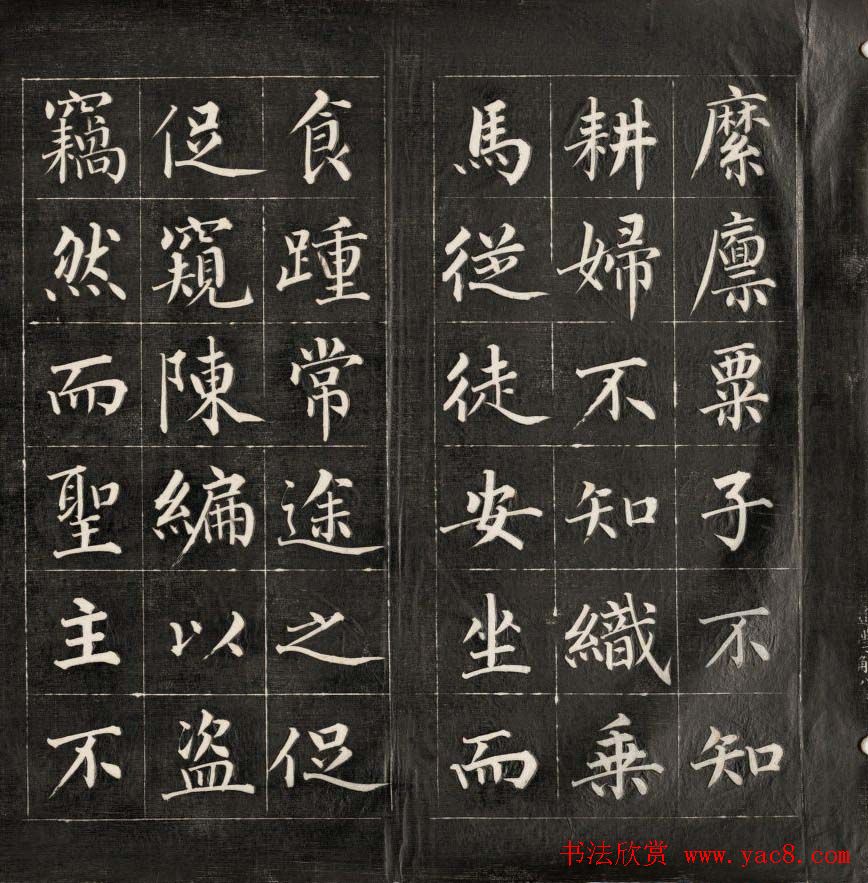 縻廩粟子不知
耕婦不知織乗
馬従徒安坐而
食踵常途之促
促窺陳編以盗
竊然而聖主不
书法欣赏 www.yac8.com